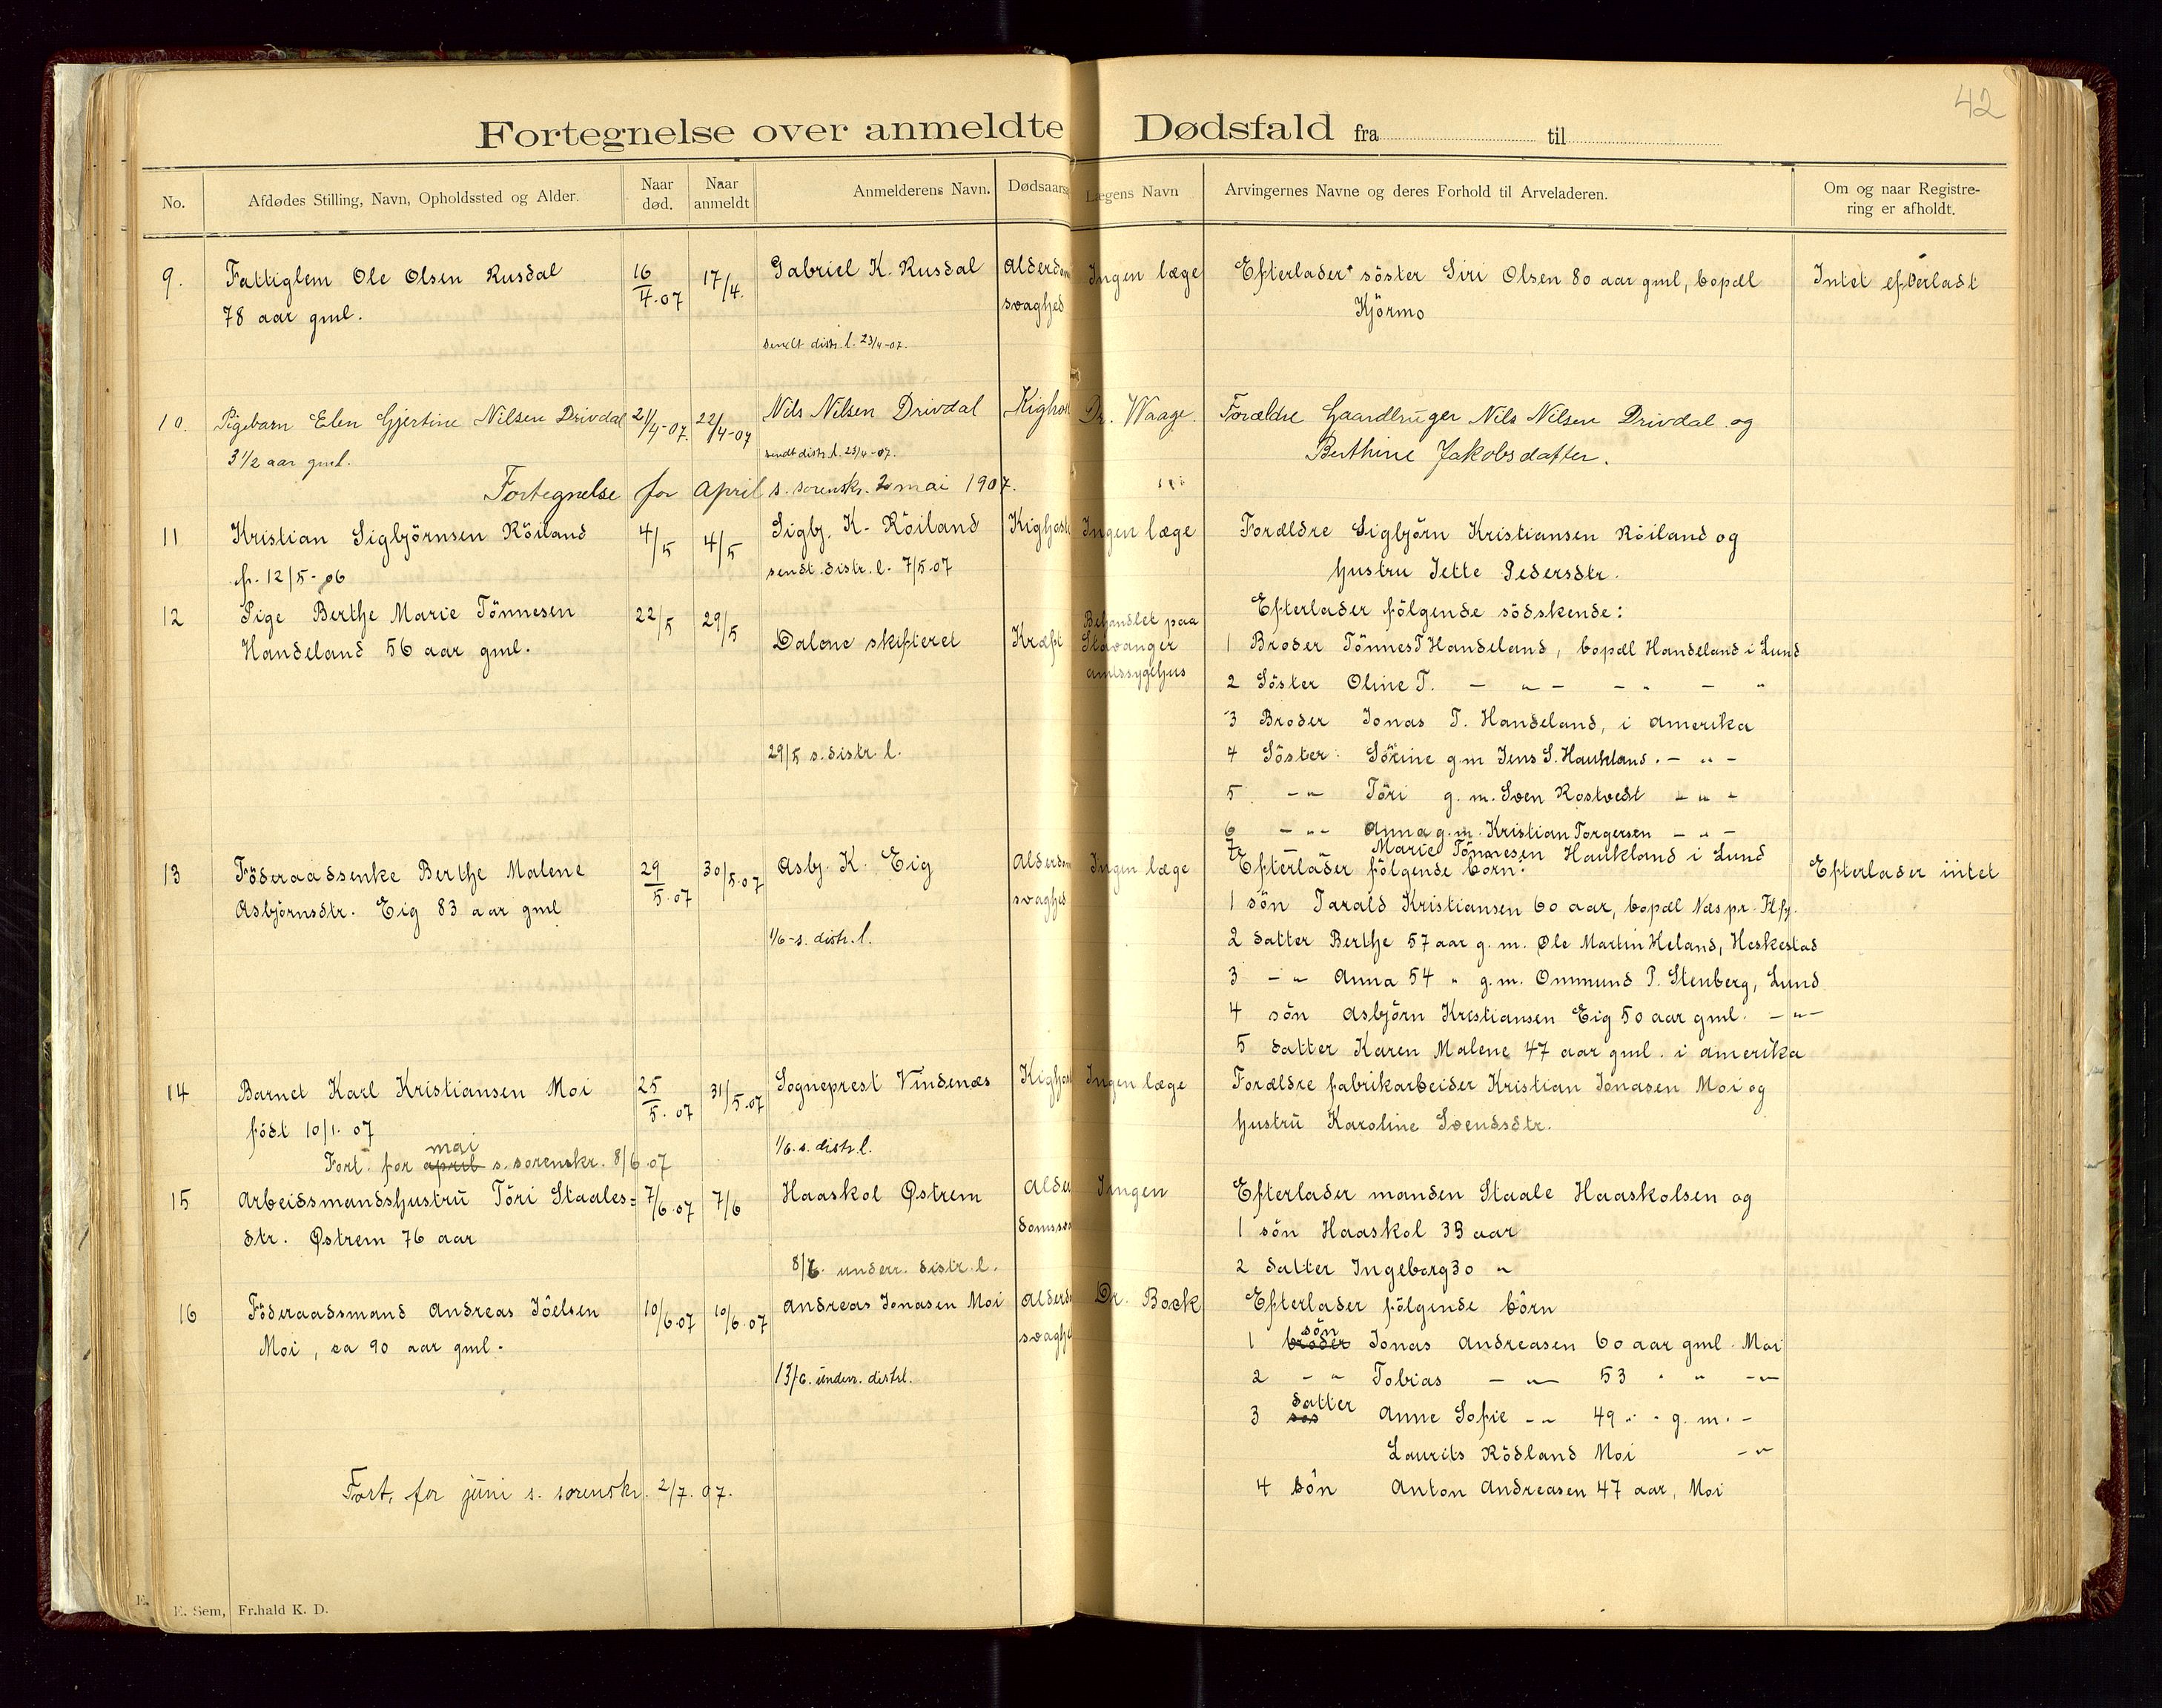 42
Fortegnelse over anmeldte Dødsfald fra til
No. Afdødes Stilling, Navn, Opholdssted og Alder. Naar død. Naar anmeldt Anmelderens Navn. Dødsaars Lægens Navn Arvingernes Navne og deres Forhold til Arveladeren. Om og naar Registrering er afholdt.
9. Fattiglem Ole Olsen Rusdal 16/4.07 17/4. Gabriel K. Rusdal Alderdom Ingen læge Efterlader søster Siri Olsen 80 aar gml, bopdl Intet efterladt
78 aar gml. svaghed Kjørmo
sendt distr. l. 23/4-07.
10. Pigebarn Elen Gjertine Nilsen Drivdal 21/4-07. 22/4-07 Nils Nilsen Drivdal Kighos Dr. Waage. Forældre Gaardbruger Nils Nilsen Drivdal og
3 1/2 aar gml. sendt distr. l. 23/4-07. Berthine Jakobsdatter.
Fortegnelse for April s. sorenskr. 2 mai 1907.
11 Kristian Sigbjörnsen Röiland 4/5 4/5 Sigbj. K. Röiland Kighoste Ingen læge Forældre Sigbjörn Kristiansen Röiland og
f. 12/5-06 sendt distr. l. 7/5.07 hustru Jette Pedersdtr.
12 Pige Berthe Marie Tönnesen 22/5 29/5 Dalene skifteret Kræft Behandlet paa Stavanger amtssygehus Efterlader fölgende södskende:
Handeland 56 aar gml. 1 Broder Tönnes T Handeland, bopdl Handeland i Lund
2 Söster Oline T. — " — — " — "
3 Broder Jonas T. Handeland, i Amerika
29/5 s. distr. l. 4 Söster Sörine g.m Jens S. Haukland. — " —
5 — " Töri g. m. Sven Rostvedt — " —
6 — " — Anna g. m. Kristian Torgersen — " —
7 — " Marie Tönnesen Haukland i Lund
13 Föderaadsenke Berthe Malene 29/5.07 30/5.07 Asbj. K. Eig Alderdom Ingen læge Efterlader fölgende börn. Efterlader intet
Asbjörnsdtr. Eig 83 aar gml svaghed 1 sön Tarald Kristiansen 60 aar, bopdl Næs pr. Flfj.
1/6-s. distr. l. 2 datter Berthe 57 aar g. m. Ole Martin Heland, Heskestad
3 — " Anna 54 " g. m. Ommund P. Stenberg, Lund
4 sön Asbjörn Kristiansen Eig 50 aar gml. — " —
5 datter Karen Malene 47 aar gml. i Amerika
14 Barnet Karl Kristiansen Moi 25/5.07 31/5.07 Sogneprest Vindenæs Kighost Ingen læge Forældre fabrikarbeider Kristian Jonasen Moi og
född 10/1.07 1/6.s. distr. l. hustru Karoline Svendsdtr.
mai
Fort. for april s. sorenskr. 8/6.07
15 Arbeidsmandshustru Töri Staales= 7/6.07 7/6 Haaskol Østrem Alder Ingen Efterlader manden Staale Haaskolsen og
dtr. Østrem 76 aar domssv 1 sön Haaskol 33 aar
8/6. underr. distr. l. 2 datter Ingeborg 30 "
16 Föderaadsmand Andreas Jöelsen 10/6.07 10/6.07 Andreas Jonasen Moi Alderd Dr. Bock Efterlader fölgende börn
Moi, ca 90 aar gml. svaghe 1 broder sön Jonas Andreasen 60 aar gml. Moi
13/6. underr. distrl. 2 — " Tobias — " — 53 " " — " —
3 sös datter Anne Sofie — " 49 " " g. m. —
Laurits Rödland Moi — "
Fort. for juni s. sorenskr. 2/7.07. 4 sön Anton Andreasen 47 aar, Moi
E. Sem, Fr.hald K. D.